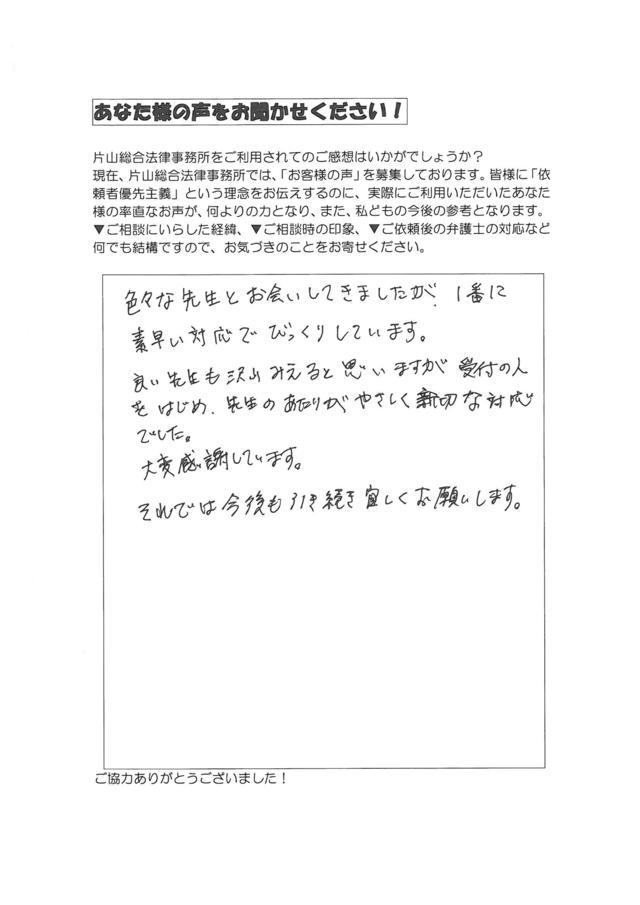 あなた様の声をお聞かせください！
片山総合法律事務所をご利用されてのご感想はいかがでしょうか？
現在、片山総合法律事務所では、「お客様の声」を募集しております。皆様に「依
頼者優先主義」という理念をお伝えするのに、実際にご利用いただいたあなた
様の率直なお声が、何よりの力となり、また、私どもの今後の参考となります。
▼ご相談にいらした経緯、▼ご相談時の印象、▼ご依頼後の弁護士の対応など
何でも結構ですので、お気づきのことをお寄せください。
色々な先生とお会いしてきましたが、1番に
素早い対応でびっくりしています。
良い先生も沢山みえると思いますが受付の人
をはじめ、先生のあたりがやさしく親切な対応
でした。
大変感謝しています。
それでは今後も引き続き宜しくお願いします。
ご協力ありがとうございました！